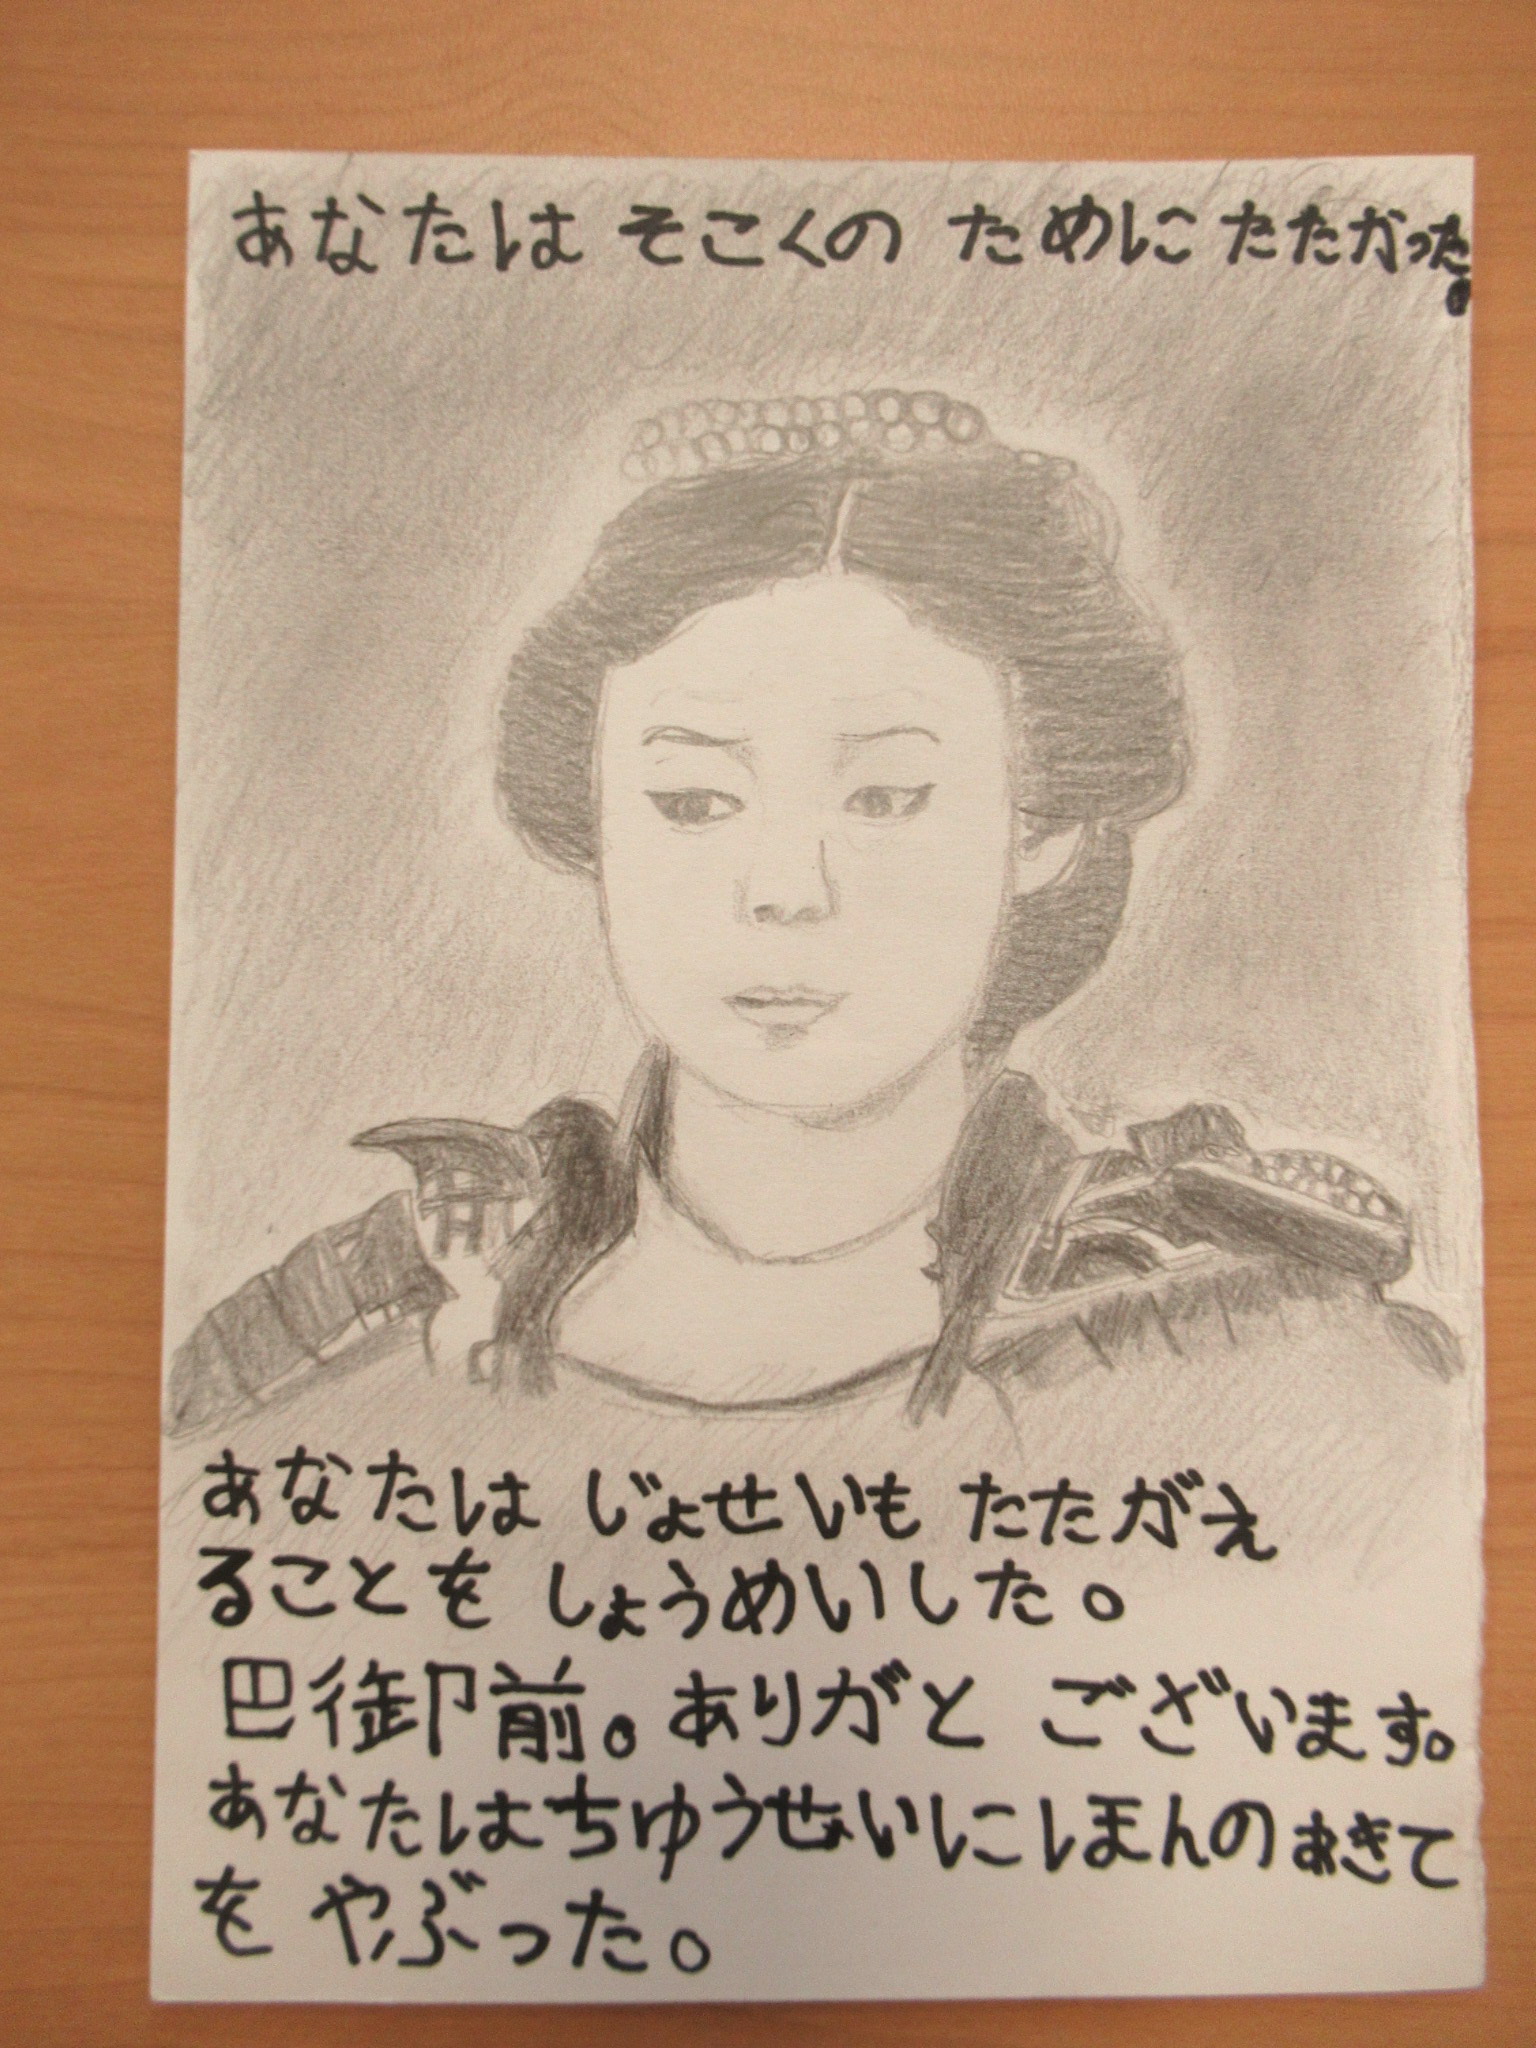 あなたは そこくの ために たたかった。
あなたは じょせいも たたがえ
ることを しょうめいした。
巴御前。ありがと ございます。
あなたはちゆうせいにほんのおきて
を やぶった。